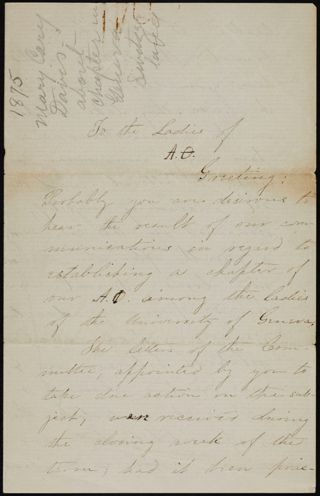 1875
Mary Cary
Davis
about
chapter in
Geneva
Switzer
land
To the Ladies of
A.O.
Greeting:
Probably you are desirous to
hear the result of our com-
munications in regard to
establishing a chapter of
our A.O. among the ladies
of the University of Geneva.
The letters of the Com-
mittee, appointed by you to
take due action on the sub-
ject, were received during
the closing week of the
term; had it been prac-